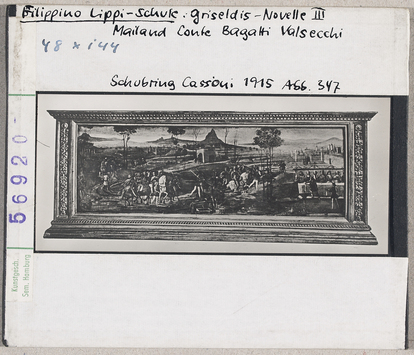 Filippino Lippi-Schule: Griseldis-Novelle III
Mailand Conte Bagatti Valsecchi
48 x 144
Schubring Cassoni 1915 Abb. 347
56920
Kunstgesch.
Sem. Hamburg